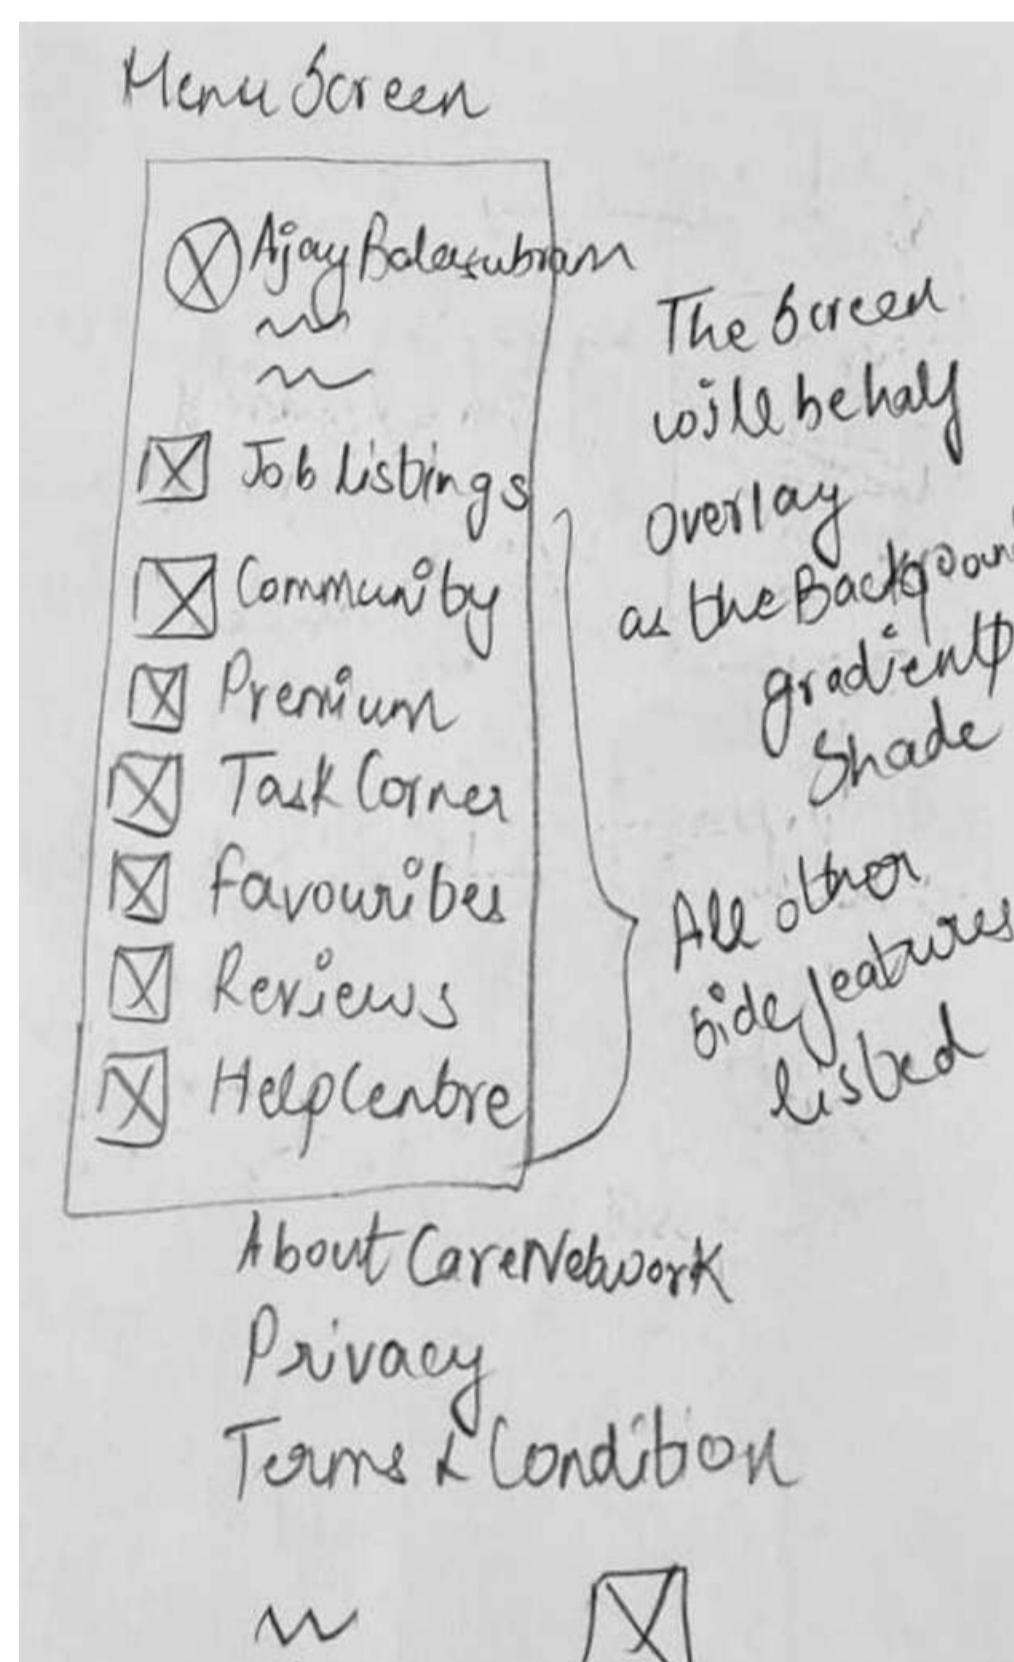 Menu Screen
Ajay Balasubram
Job Listings
Community
Premium
Task Corner
Favourites
Reviews
Help Centre
The Screen
will be half
overlay
as the Background
gradient
Shade
All other
side features
listed
About CareNetwork
Privacy
Terms & Condition